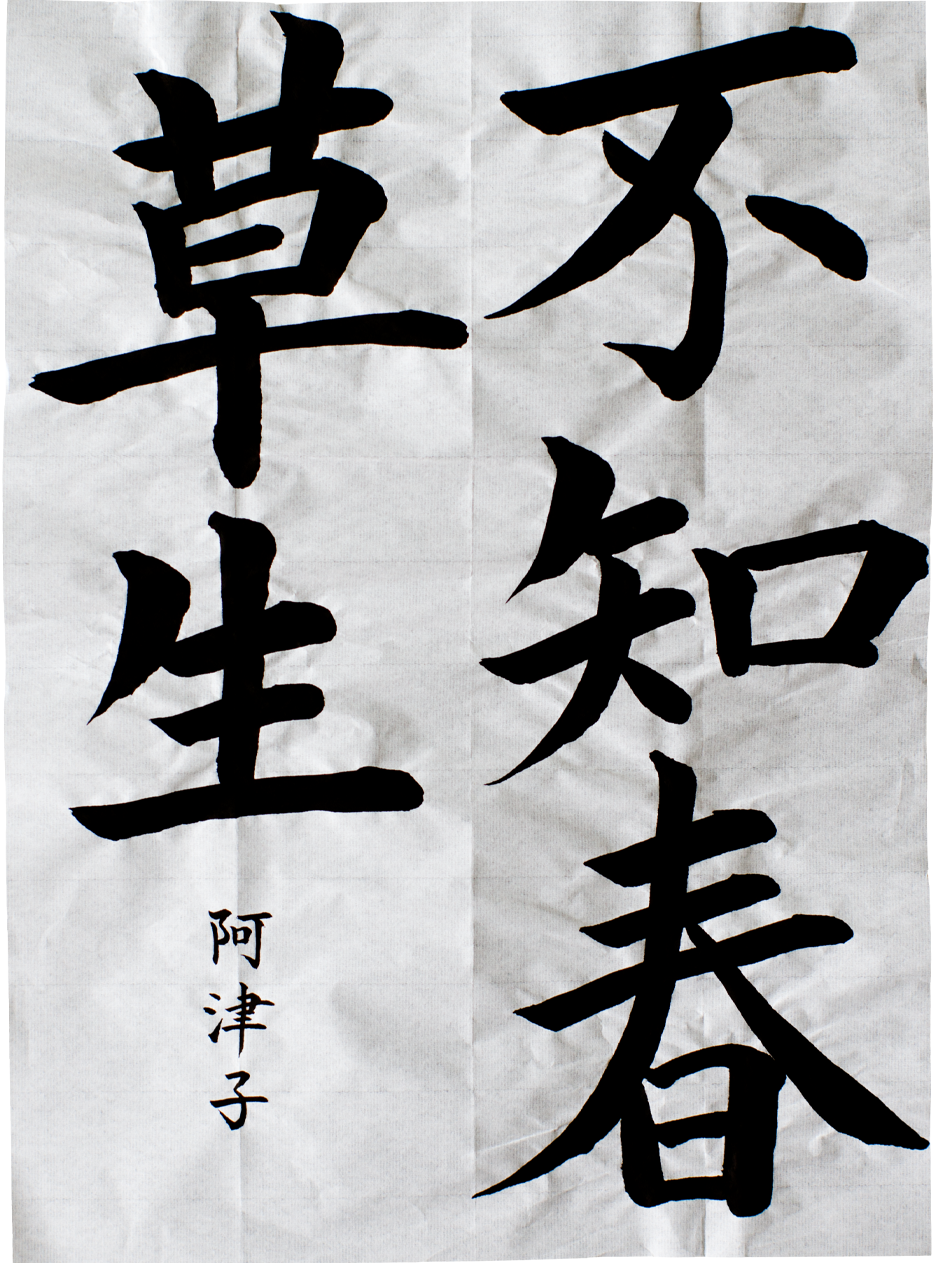 不知春
草生
阿津子